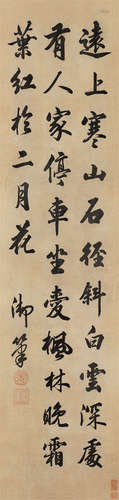 遠上寒山石徑斜白雲深處
有人家停車坐愛楓林晚霜
葉紅於二月花
御筆